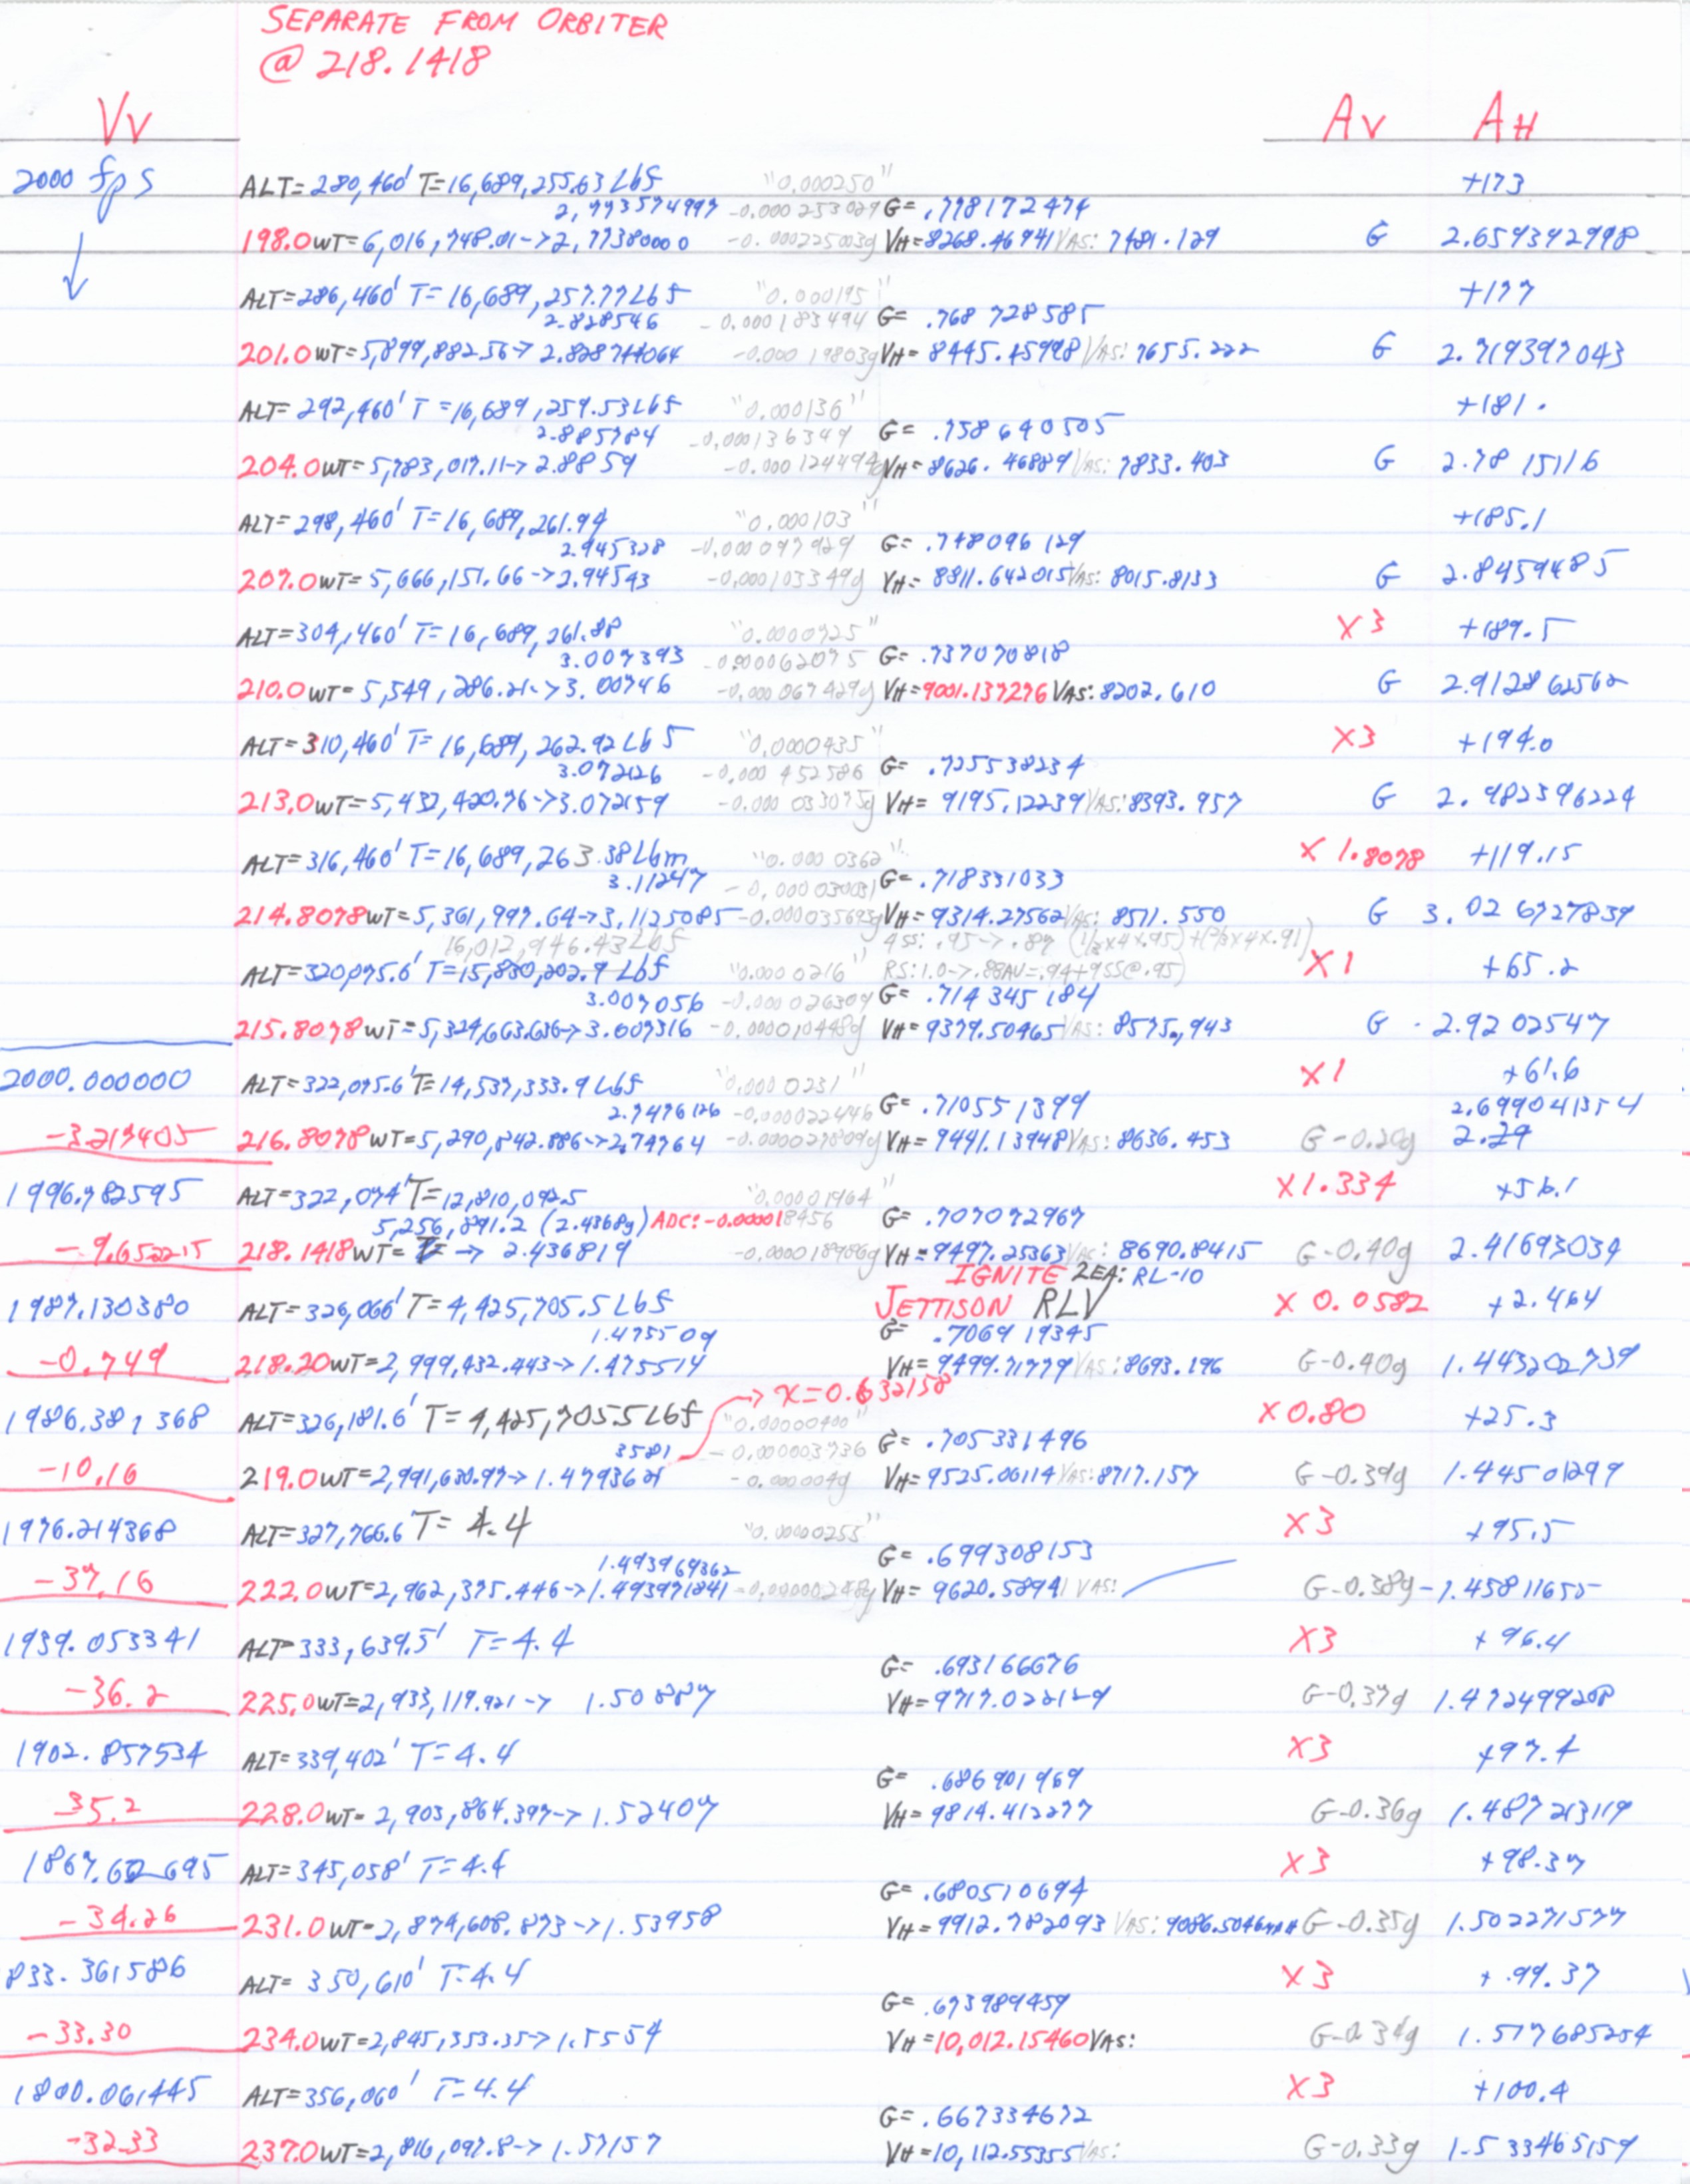 SEPARATE FROM ORBITER
@ 218.1418
Vv Av AH
2000 fps ALT= 280,460' T= 16,689,255.63 Lbf "0.000250" +173
2,773574997 -0.000253029 G= .778172474
198.0 WT= 6,016,748.01-> 2,77380000 -0.000225003g VH=8268.46741 VAS: 7481.129 G 2.659342998
ALT=286,460' T= 16,689,257.77 Lbf "0.000195" +177
2.828546 -0.000183494 G= .768728585
201.0 WT=5,899,882.56-> 2.828744064 -0.00019803g VH= 8445.45998 VAS: 7655.222 G 2.719397043
ALT= 292,460' T =16,689,259.53 Lbf "0.000136" +181.
2.885784 -0.000136349 G= .758640505
204.0 WT= 5,783,017.11-> 2.8859 -0.000124494g VH= 8626.46889 VAS: 7833.403 G 2.7815116
ALT= 298,460' T=16,689,261.94 "0.000103" +185.1
2.945328 -0.000097929 G= .748096129
207.0 WT= 5,666,151.66->2.94543 -0.000103349g VH= 8811.642015 VAS: 8015.8133 G 2.8459485
ALT=304,460' T=16,689,261.88 "0.0000725" X3 +189.5
3.007393 -0.000062075 G= .737070818
210.0 WT= 5,549,286.21->3.00746 -0.000067429g VH=9001.137276 VAS: 8202.610 G 2.912862562
ALT= 310,460' T= 16,689,262.92 Lbf "0.0000435" X3 +194.0
3.072126 -0.000452586 G= .725538234
213.0 WT= 5,432,420.76->3.072159 -0.000033075g VH= 9195.12239 VAS: 8393.957 G 2.982396224
ALT=316,460' T=16,689,263.38 Lbm "0.0000362" X 1.8078 +119.15
3.11247 -0.00003003 G= .718331033
214.8078 WT=5,361,997.64->3,1125085 -0.000035693g VH= 9314.27562 VAS: 8511.550 G 3.026727839
16,012,946.43 Lbf 4SS: .95-> .87 (1/3x4x.95)+(2/3x4x.91)
ALT=320,075.6' T=15,830,202.9 Lbf "0.0000216" RS:1.0->.88AV=.94+9SS@.95) X1 +65.2
3.007056 -0.000026309 G= .714345184
215.8078 WT=5,324,663.636->3.007316 -0.000010448g VH= 9379.50465 VAS: 8575.943 G 2.9202547
2000.000000 ALT=322,075.6' T=14,537,333.9 Lbf "0.0000231" X1 +61.6
2.7476126 -0.000022446 G= .710551399 2.699041354
-3.217405 216.8078 WT=5,290,842.886->2.74764 -0.000027809g VH= 9441.13948 VAS: 8636.453 G-0.20g 2.29
1996.782595 ALT=322,074' T=12,810,092.5 "0.00001964" X1.334 +56.1
5,256,891.2 (2.4368g) ADC:-0.000018456 G= .707072967
-9.652215 218.1418 WT= -> 2.436819 -0.000018986g VH=9497.25363 VAS: 8690.8415 G-0.40g 2.41693039
IGNITE 2EA: RL-10
1987.130380 ALT=326,066' T=4,425,705.5 Lbf JETTISON RLV X 0.0582 +2.464
1.475509 G= .706919345
-0.749 218.20 WT=2,999,432.443->1.475514 VH=9499.71779 VAS: 8693.196 G-0.40g 1.443202739
-> x=0.632158
1986.381368 ALT=326,181.6' T= 4,425,705.5 Lbf "0.00000400" X0.80 +25.3
3581 -0.000003736 G= .705331496
-10.16 219.0 WT=2,991,630.97-> 1.479362 -0.000004g VH= 9525.06114 VAS: 8717.157 G-0.39g 1.44501299
1976.214368 ALT=327,766.6' T= 4.4 "0.00000255" X3 +95.5
1.493969362 G= .699308153
-37.16 222.0 WT=2,962,375.446->1.493971841 -0.00000248g VH= 9620.5894 VAS: G-0.38g 1.45811655
1939.053341 ALT=333,639.5' T=4.4 X3 +96.4
G= .693166676
-36.2 225.0 WT=2,933,119.921-> 1.50887 VH=9717.022129 G-0.37g 1.472499208
1902.857534 ALT=339,402' T=4.4 X3 +97.4
G= .686901969
-35.2 228.0 WT= 2,903,864.397-> 1.52407 VH=9814.412277 G-0.36g 1.487213119
1867.62695 ALT=345,058' T=4.4 X3 +98.37
G= .680510694
-34.26 231.0 WT= 2,874,608.873->1.53958 VH= 9912.782093 VAS: 9086.5046 G-0.35g 1.502271577
833.361586 ALT= 350,610' T=4.4 X3 +99.37
G= .673989459
-33.30 234.0 WT=2,845,353.35-> 1.5554 VH=10,012.15460 VAS: G-0.34g 1.517685254
1800.061445 ALT=356,060' T=4.4 X3 +100.4
G= .667334672
-32.33 237.0 WT=2,816,097.8-> 1.57157 VH=10,112.55355 VAS: G-0.33g 1.533465159